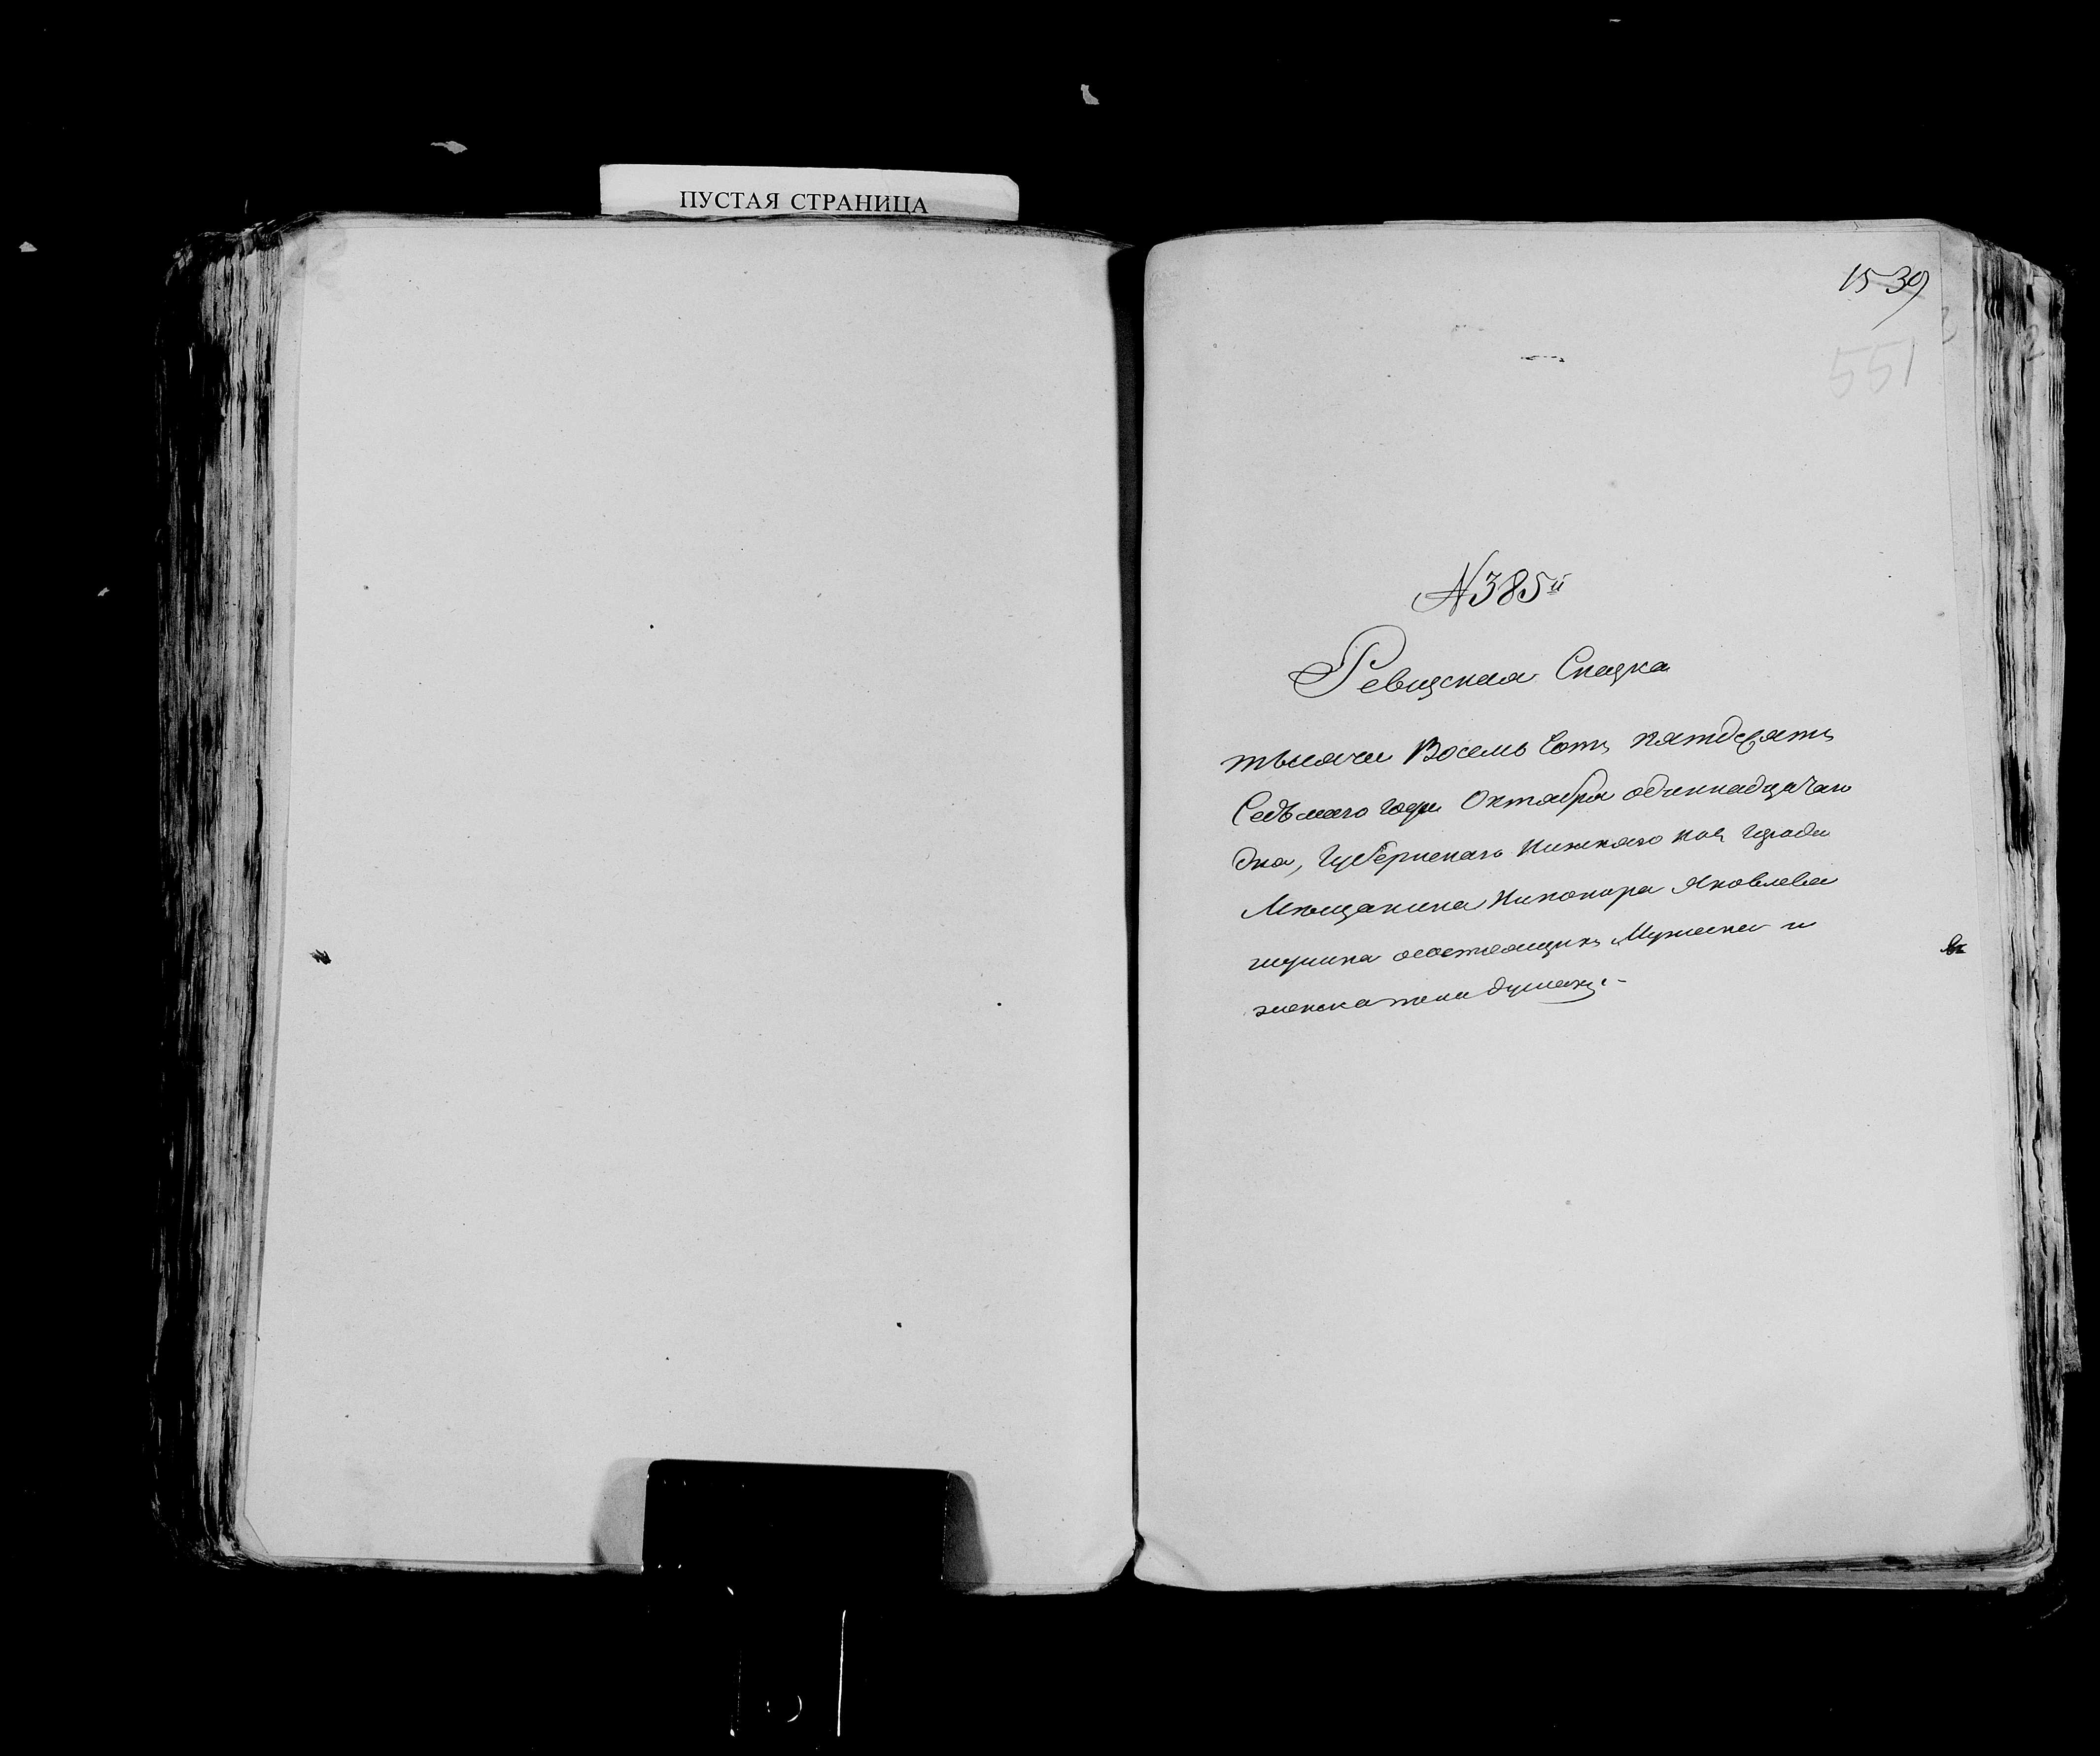 ПУСТАЯ СТРАНИЦА
1539
551
№385й
Ревизская Сказка
тысяча Восемь Сотъ пятдесятъ
Седьмаго года Октября одиннадцатаго
дня, Губернскаго Нижняго нов города
Мѣщанина Никонора Яковлева
осостоящихъ Мужеска и
женска пола душахъ.